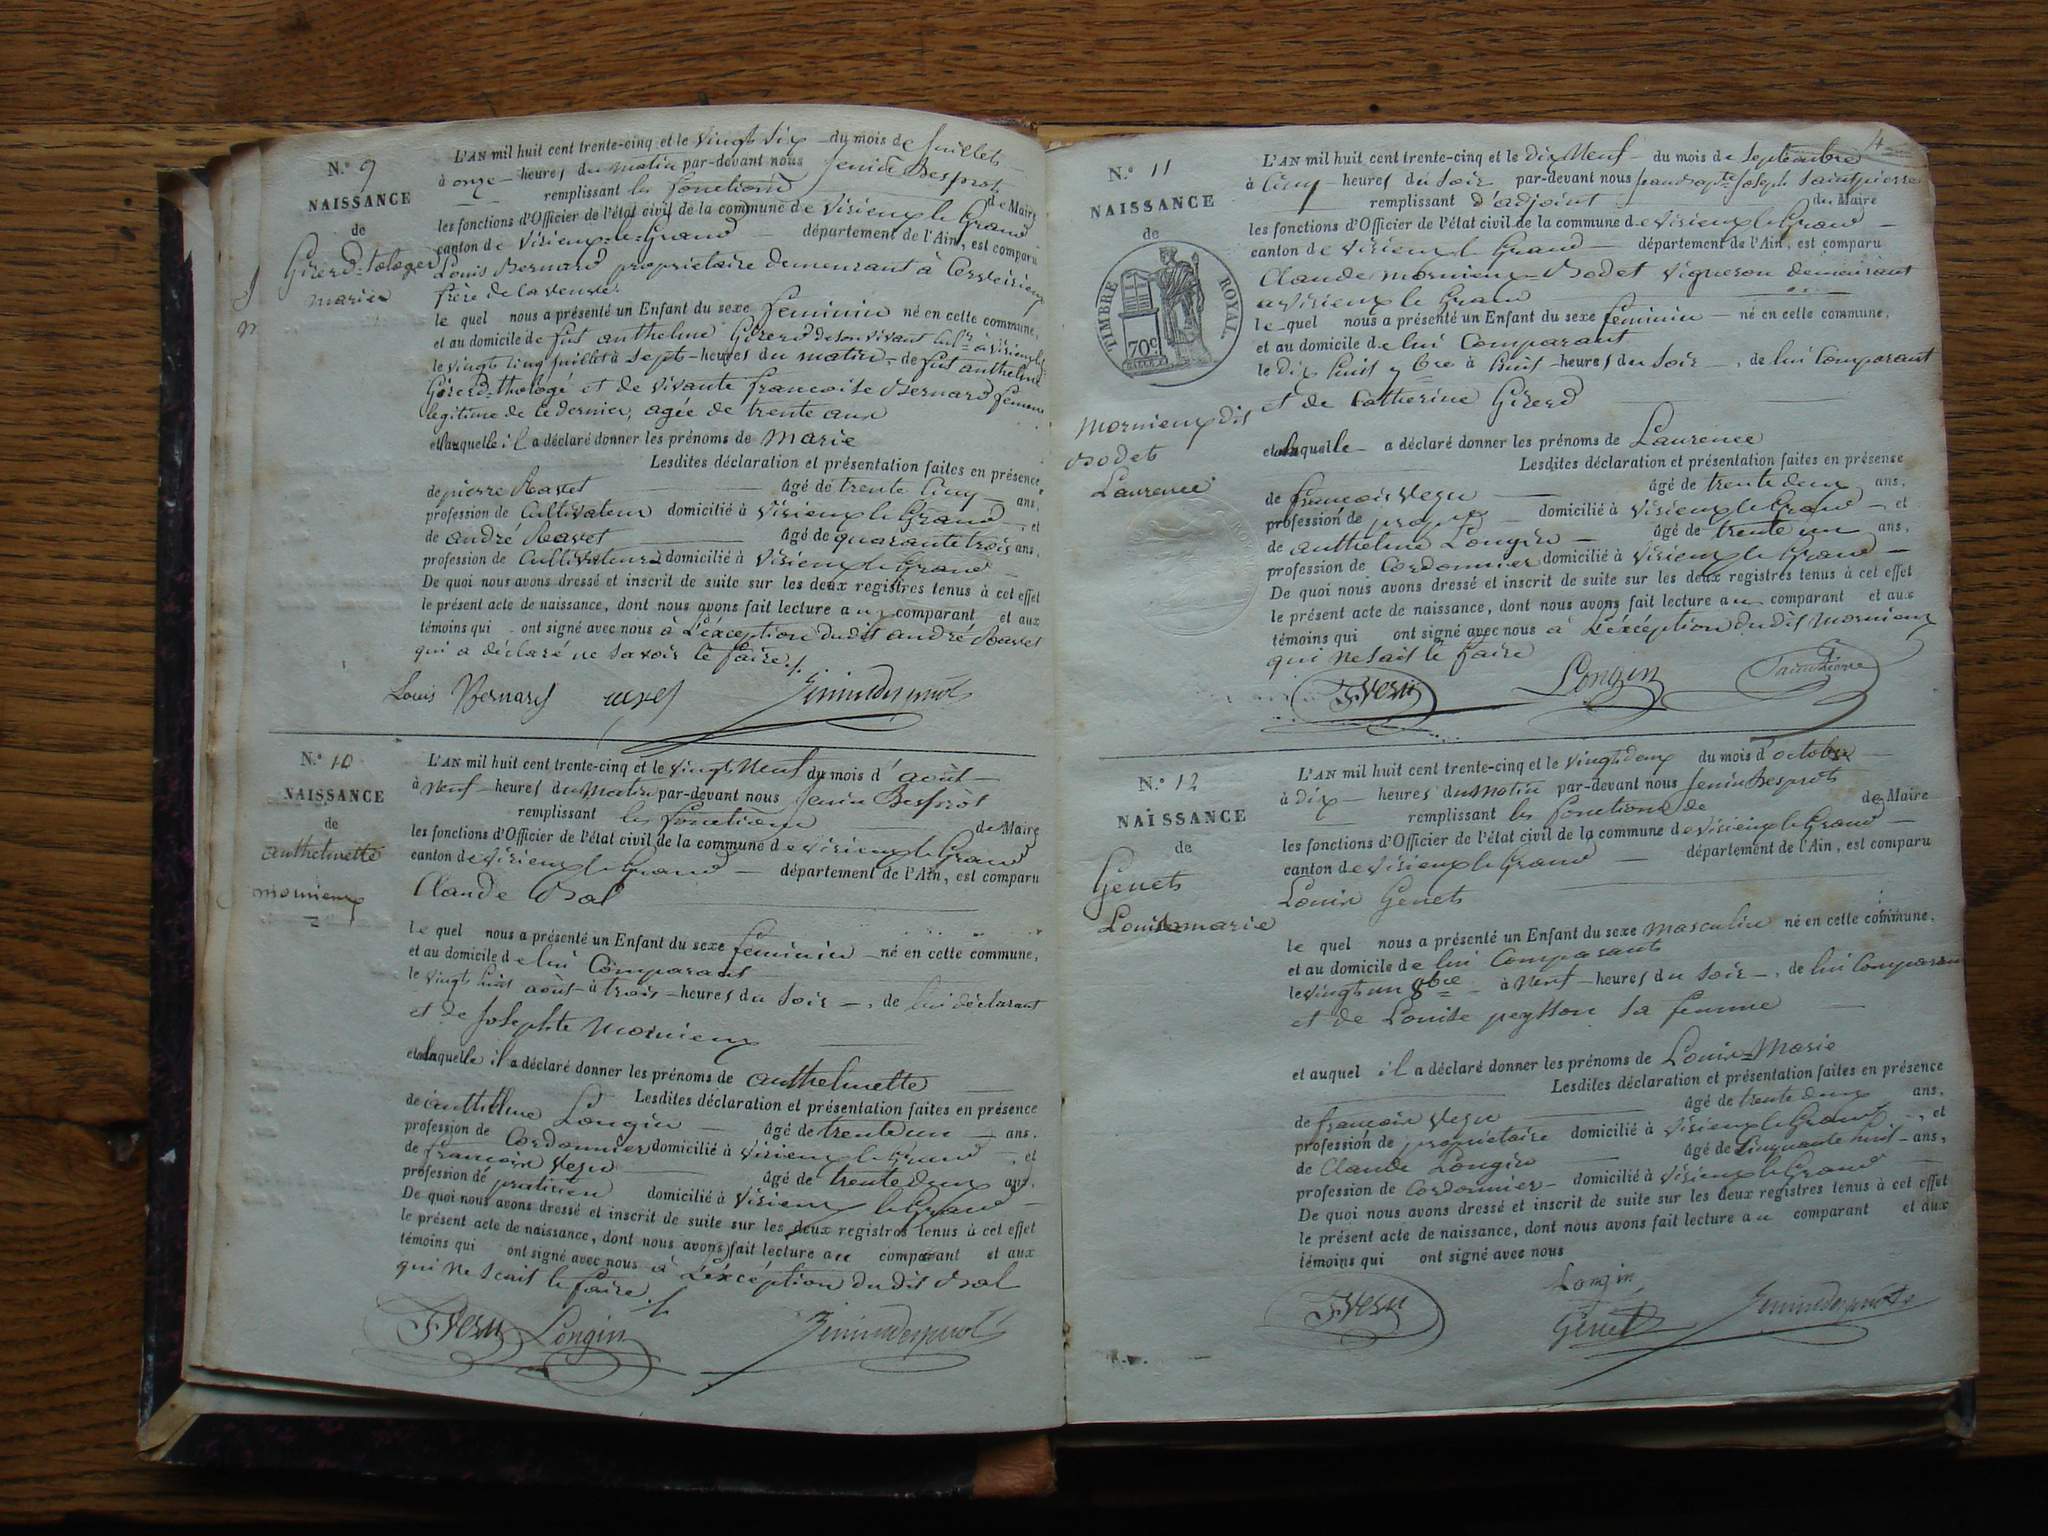 N.º 9
NAISSANCE
de
Gizerd-tologer
marie
L'AN mil huit cent trente-cinq et le vingt six du mois de Juillet
à onze heures du matin par-devant nous Jenin Desprots
remplissant les fonctions de Maire
les fonctions d'Officier de l'état civil de la commune de virieux le Grand
canton de virieux-le-Grand département de l'Ain, est comparu
Louis Bernard propriétaire demeurant à
frère de la veuve
le quel nous a présenté un Enfant du sexe feminin né en cette commune,
et au domicile de fut anthelme Gizerd de son vivant
le vingt cinq Juillet à sept heures du matin de fut anthelme
Gizerd-thologé et de vivante francoise Bernard femme
legitime de ce dernier, agée de trente ans
et a laquelle il a déclaré donner les prénoms de Marie
Lesdites déclaration et présentation faites en présence
de pierre Ravet âgé de trente cinq ans,
profession de Cultivateur domicilié à virieux le Grand, et
de andré Ravet âgé de quarante trois ans,
profession de Cultivateur domicilié à virieux le Grand
De quoi nous avons dressé et inscrit de suite sur les deux registres tenus à cet effet
le présent acte de naissance, dont nous avons fait lecture au comparant et aux
témoins qui ont signé avec nous à L'éxception dudit andré Ravet
qui a déclaré ne savoir le faire./.
Louis Bernard ravet Jenindesprots
N.º 10
NAISSANCE
de
anthelmette
mornieux
L'AN mil huit cent trente-cinq et le vingt Neuf du mois d'août
à Neuf heures du Matin par-devant nous Jenin Desprots
remplissant les fonctions de Maire
les fonctions d'Officier de l'état civil de la commune de virieux le Grand
canton de virieux le Grand département de l'Ain, est comparu
Claude Bal
le quel nous a présenté un Enfant du sexe feminin né en cette commune,
et au domicile de lui Comparant
le vingt huit août à trois heures du Soir, de lui déclarant
et de Josephte Mornieux
et a laquelle il a déclaré donner les prénoms de anthelmette
Lesdites déclaration et présentation faites en présence
de anthelme Longin âgé de trente un ans,
profession de Cordonnier domicilié à virieux le Grand, et
de francois vesu âgé de trente deux ans,
profession de praticien domicilié à virieux le Grand
De quoi nous avons dressé et inscrit de suite sur les deux registres tenus à cet effet
le présent acte de naissance, dont nous avons fait lecture au comparant et aux
témoins qui ont signé avec nous à L'éxcéption du dit Bal
qui ne scait le faire ./.
Fvesu Longin Jenindesprots
4
N.º 11
NAISSANCE
de
TIMBRE ROYAL
70c
mornieux dit
Bodet
Laurence
L'AN mil huit cent trente-cinq et le dix Neuf du mois de Septembre
à Cinq heures du Soir par-devant nous Jean Bapte Joseph Saintpierre
remplissant d'adjoint du Maire
les fonctions d'Officier de l'état civil de la commune de virieux le Grand
canton de virieux le Grand département de l'Ain, est comparu
Claude mornieux-Bodet vigneron demeurant
a virieux le Grand
le quel nous a présenté un Enfant du sexe feminin né en cette commune,
et au domicile de lui Comparant
le dix huit 7bre à huit heures du Soir, de lui Comparant
et de Catherine Gizerd
et a laquelle a déclaré donner les prénoms de Laurence
Lesdites déclaration et présentation faites en présence
de francois vesu âgé de trente deux ans,
profession de domicilié à virieux le Grand, et
de anthelme Longin âgé de trente un ans,
profession de Cordonnier domicilié à virieux le Grand
De quoi nous avons dressé et inscrit de suite sur les deux registres tenus à cet effet
le présent acte de naissance, dont nous avons fait lecture au comparant et aux
témoins qui ont signé avec nous à L'éxcéption du dit Mornieux
qui ne sait le faire
Fvesu Longin Saintpierre
N.º 12
NAISSANCE
de
Genets
Louis marie
L'AN mil huit cent trente-cinq et le vingt deux du mois d'octobre
à dix heures du Matin par-devant nous Jenin Desprots
remplissant les fonctions de de Maire
les fonctions d'Officier de l'état civil de la commune de virieux le Grand
canton de virieux le Grand département de l'Ain, est comparu
Louis Genets
le quel nous a présenté un Enfant du sexe masculin né en cette commune,
et au domicile de lui Comparant
le vingt un 8bre à Neuf heures du Soir, de lui Comparant
et de Louise peysson sa femme
et auquel il a déclaré donner les prénoms de Louis-Marie
Lesdites déclaration et présentation faites en présence
de francois vesu âgé de trente deux ans,
profession de propriétaire domicilié à virieux le Grand, et
de Claude Longin âgé de Cinquante huit ans,
profession de Cordonnier domicilié à virieux le Grand
De quoi nous avons dressé et inscrit de suite sur les deux registres tenus à cet effet
le présent acte de naissance, dont nous avons fait lecture au comparant et aux
témoins qui ont signé avec nous
Longin
Fvesu Genets Jenindesprots